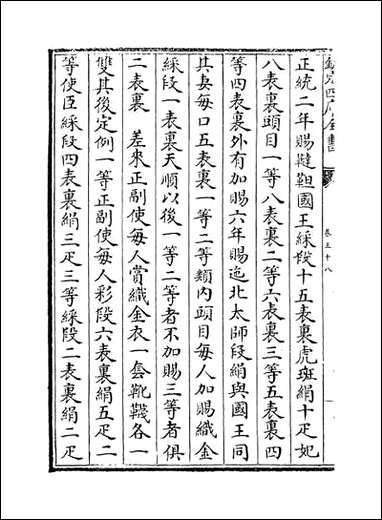 欽定四庫全書
卷五十八
正統二年賜韃靼國王綵段十五表裏虎斑絹十疋妃
八表裏頭目一等八表裏二等六表裏三等五表裏四
等四表裏外有加賜六年賜迤北太師段絹與國王同
其妻每口五表裏一等二等類内頭目每人加賜織金
綵段一表裏天順以後一等二等者不加賜三等者俱
二表裏　差來正副使每人賞織金衣一套靴韈各一
雙其後定例一等正副使每人彩段六表裏絹五疋二
等使臣綵段四表裏絹三疋三等綵段二表裏絹二疋